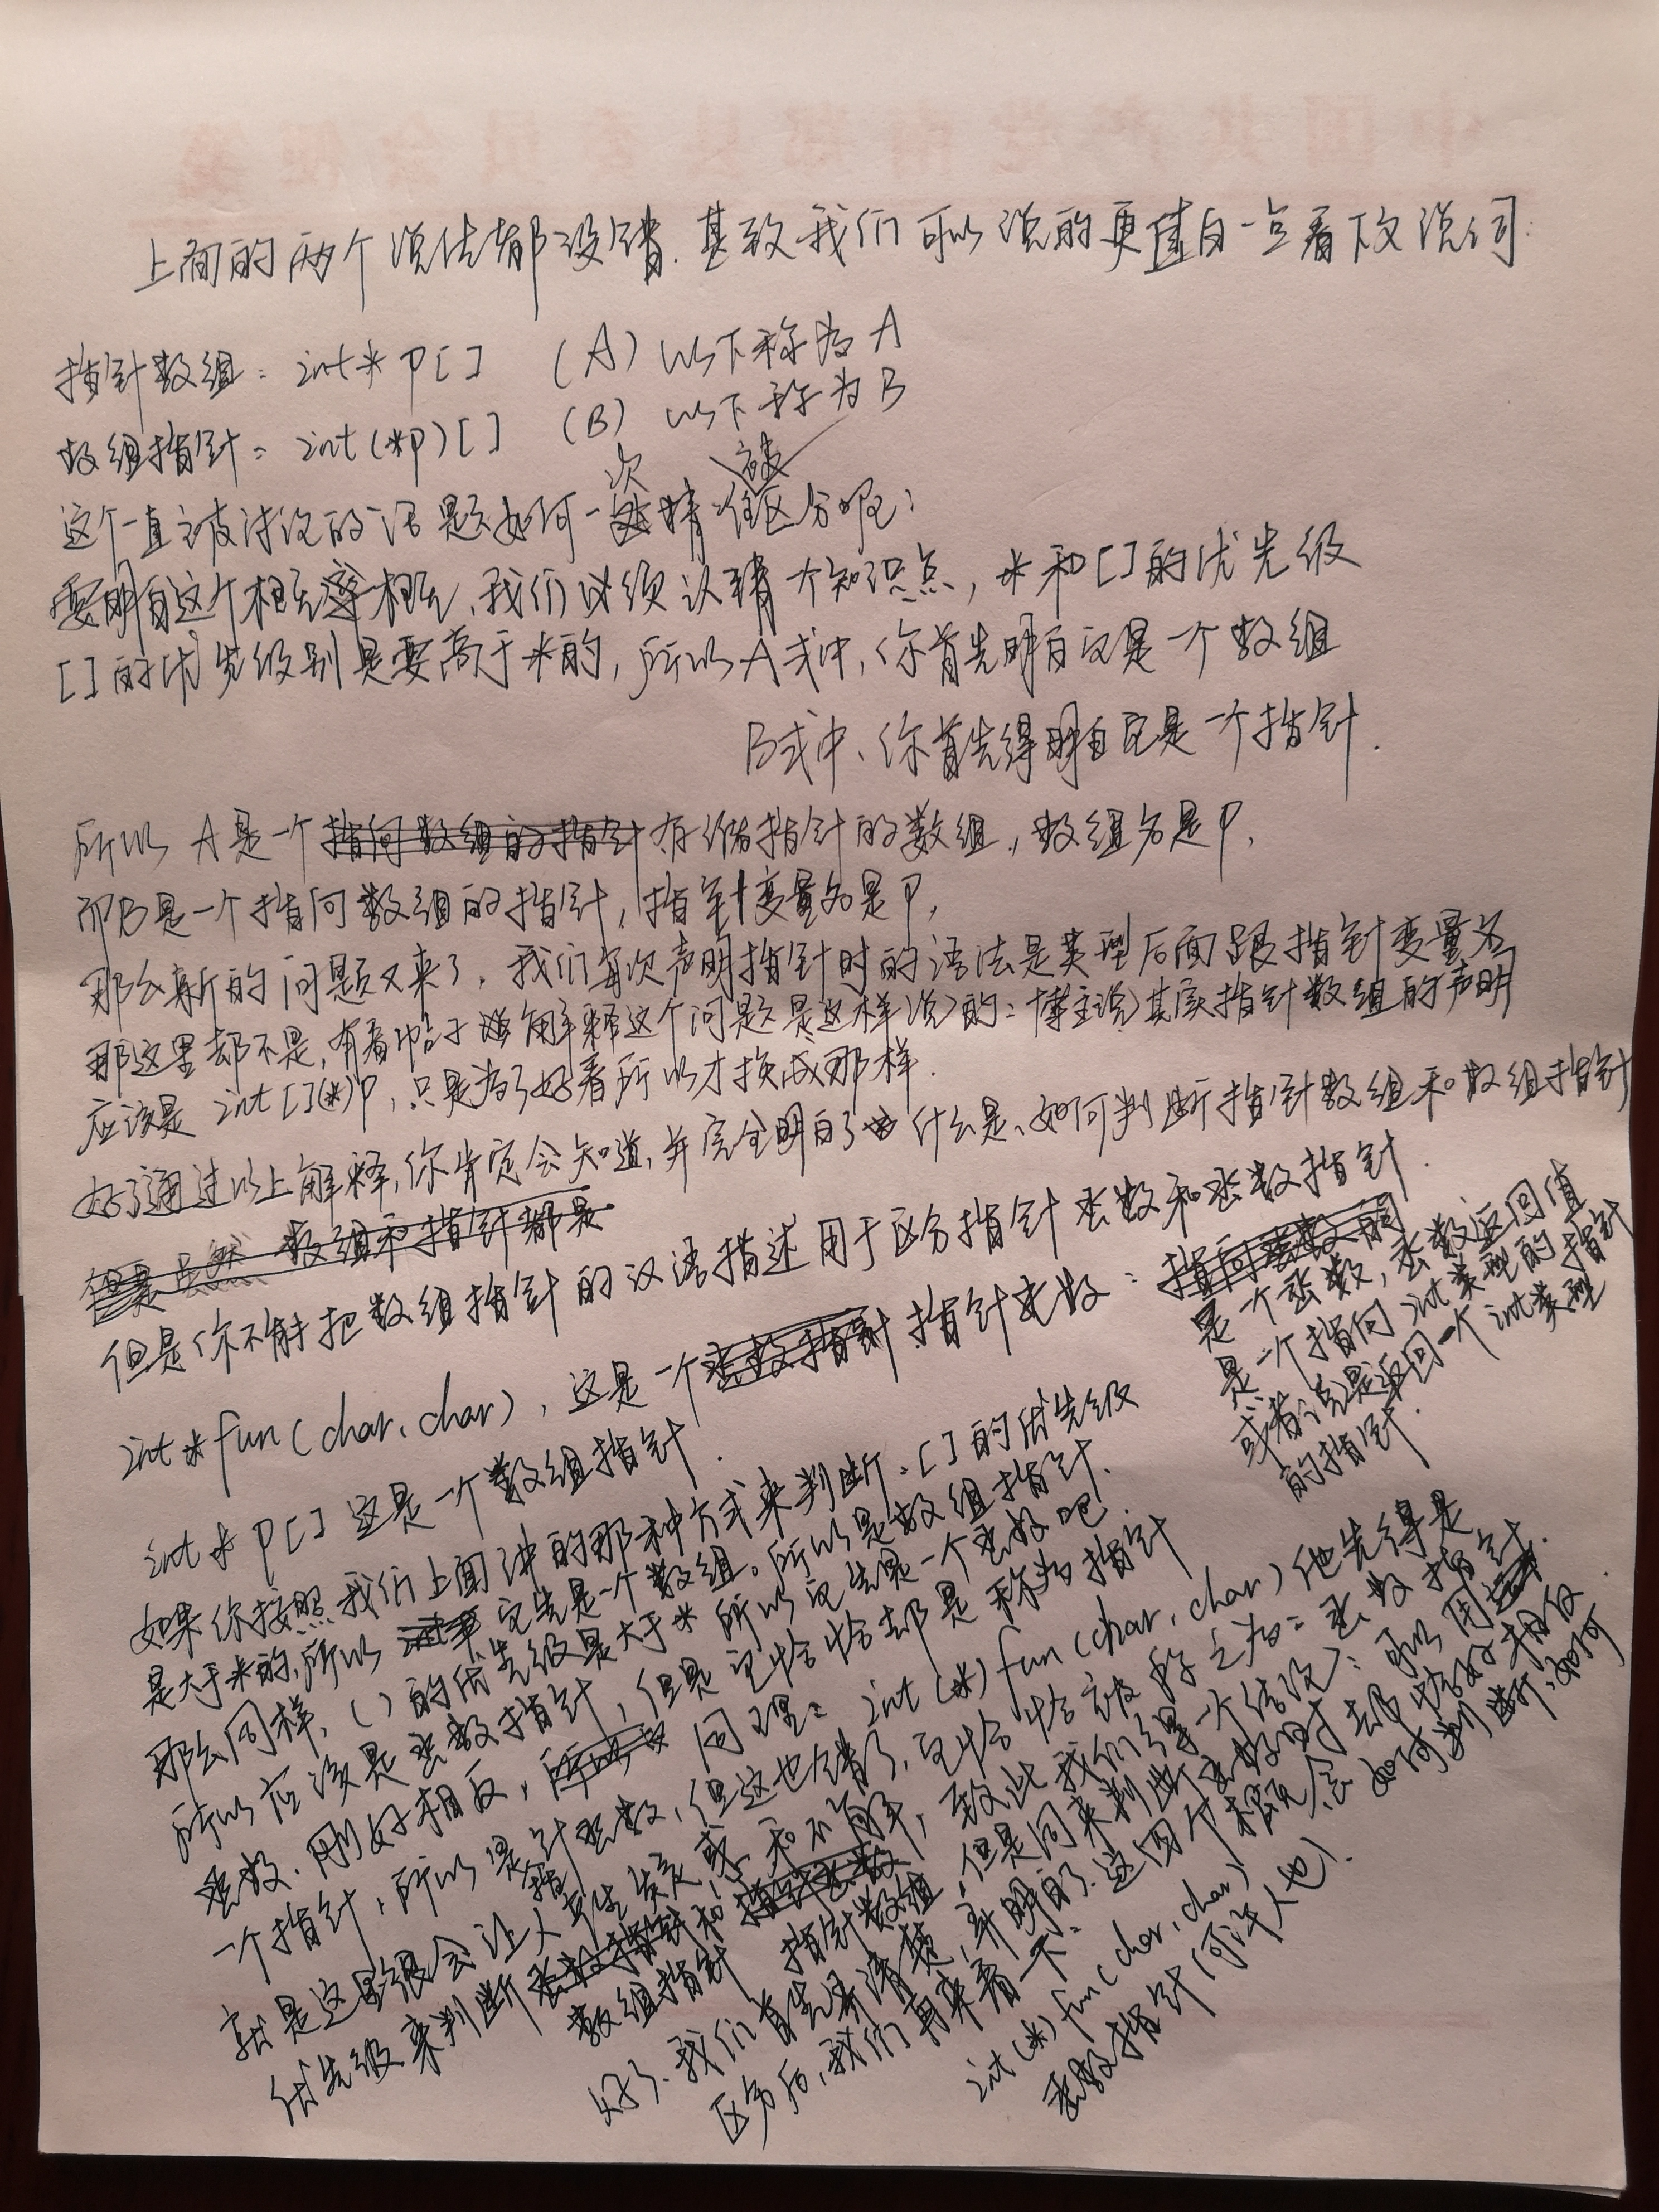 上面的两个说法都没错.甚致我们可以说的更直白一点看下文说词:
指针数组: int* P[] (A) 以下称为A
数组指针: int(*P)[] (B) 以下称为B
这个一直被讨论的话题如何一次精准区分呢:
要明白这个相互概念,我们必须认清一个知识点,*和[]的优先级
[]的优先级别是要高于*的,所以A式中,你首先明白它是一个数组
B式中、你首先得明白它是一个指针.
所以 A是一个存储指针的数组,数组名是P,
而B是一个指向数组的指针,指针变量名是P,
那么新的问题又来了,我们每次声明指针时的语法是类型后面跟指针变量名
那这里却不是,有看帖子解释这个问题是这样说的:博主说其实指针数组的声明
应该是 int[](*)P,只是为了好看所以才换成那样.
好了通过以上解释,你肯定会知道,并完全明白了什么是、如何判断指针数组和数组指针
但是 虽然 数组和指针都是
但是你不能把数组指针的汉语描述用于区分指针函数和函数指针.
int*fun(char,char),这是一个函数指针指针函数:指向函数的
是一个函数,函数返回值
是一个指向int类型的指针
或者说是返回一个int类型
的指针.
int * P[] 这是一个数组指针.
如果你按照我们上面讲的那种方式来判断.[]的优先级
是大于*的,所以 它先是一个数组。所以是数组指针.
那么同样,()的优先级是大于* 所以它先是一个函数吧.
所以应该是函数指针,但是它恰恰却是称为指针
函数.刚好相反,同理: int(*)fun(char,char)他先得是
一个指针,所以是指针函数,但这也错了,它恰恰被称之为:函数指针.
就是这里很会让人产生误定或和不解,致此我们得一个结论:可以用
优先级来判断数组指针 指针数组,但是同来判断函数时却恰好相反.
好了.我们首先弄清楚,并明白了.这四个概念 如何判断,如何
区分后,我们再来看一下:
int(*)fun(char,char)
函数指针(何许人也).